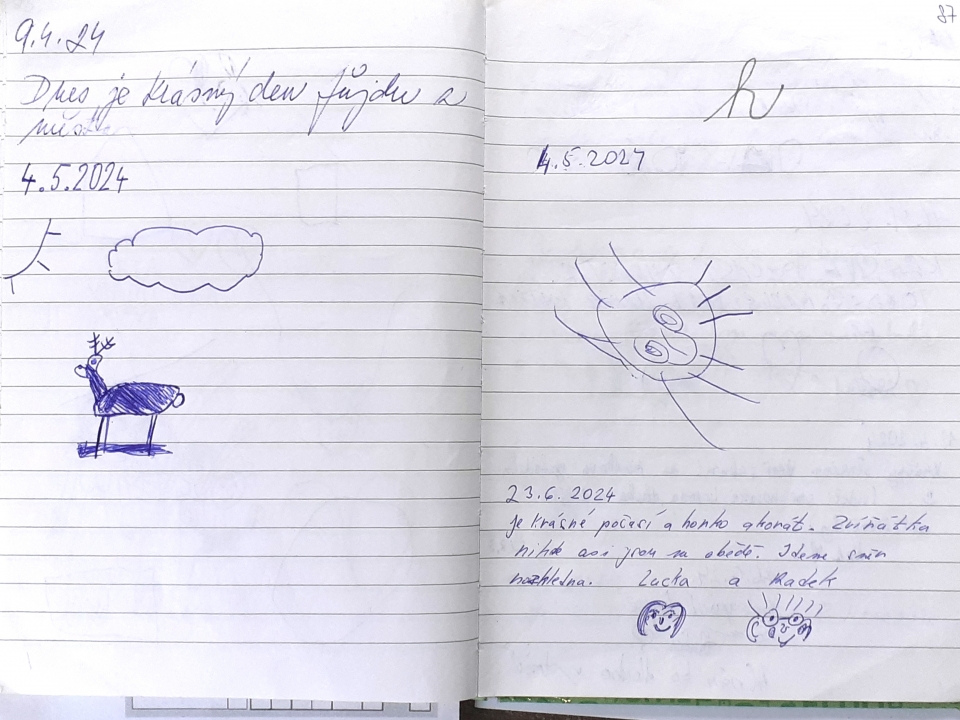 9.4.24
Dnes je krásný den půjdu z
4.5.2024
87
h
4.5.2024
23.6.2024
je krásné počasí a horko akorát. Zvířátka
nikde asi jsou na obědě. Jdeme směr
rozhledna. Lucka a Radek